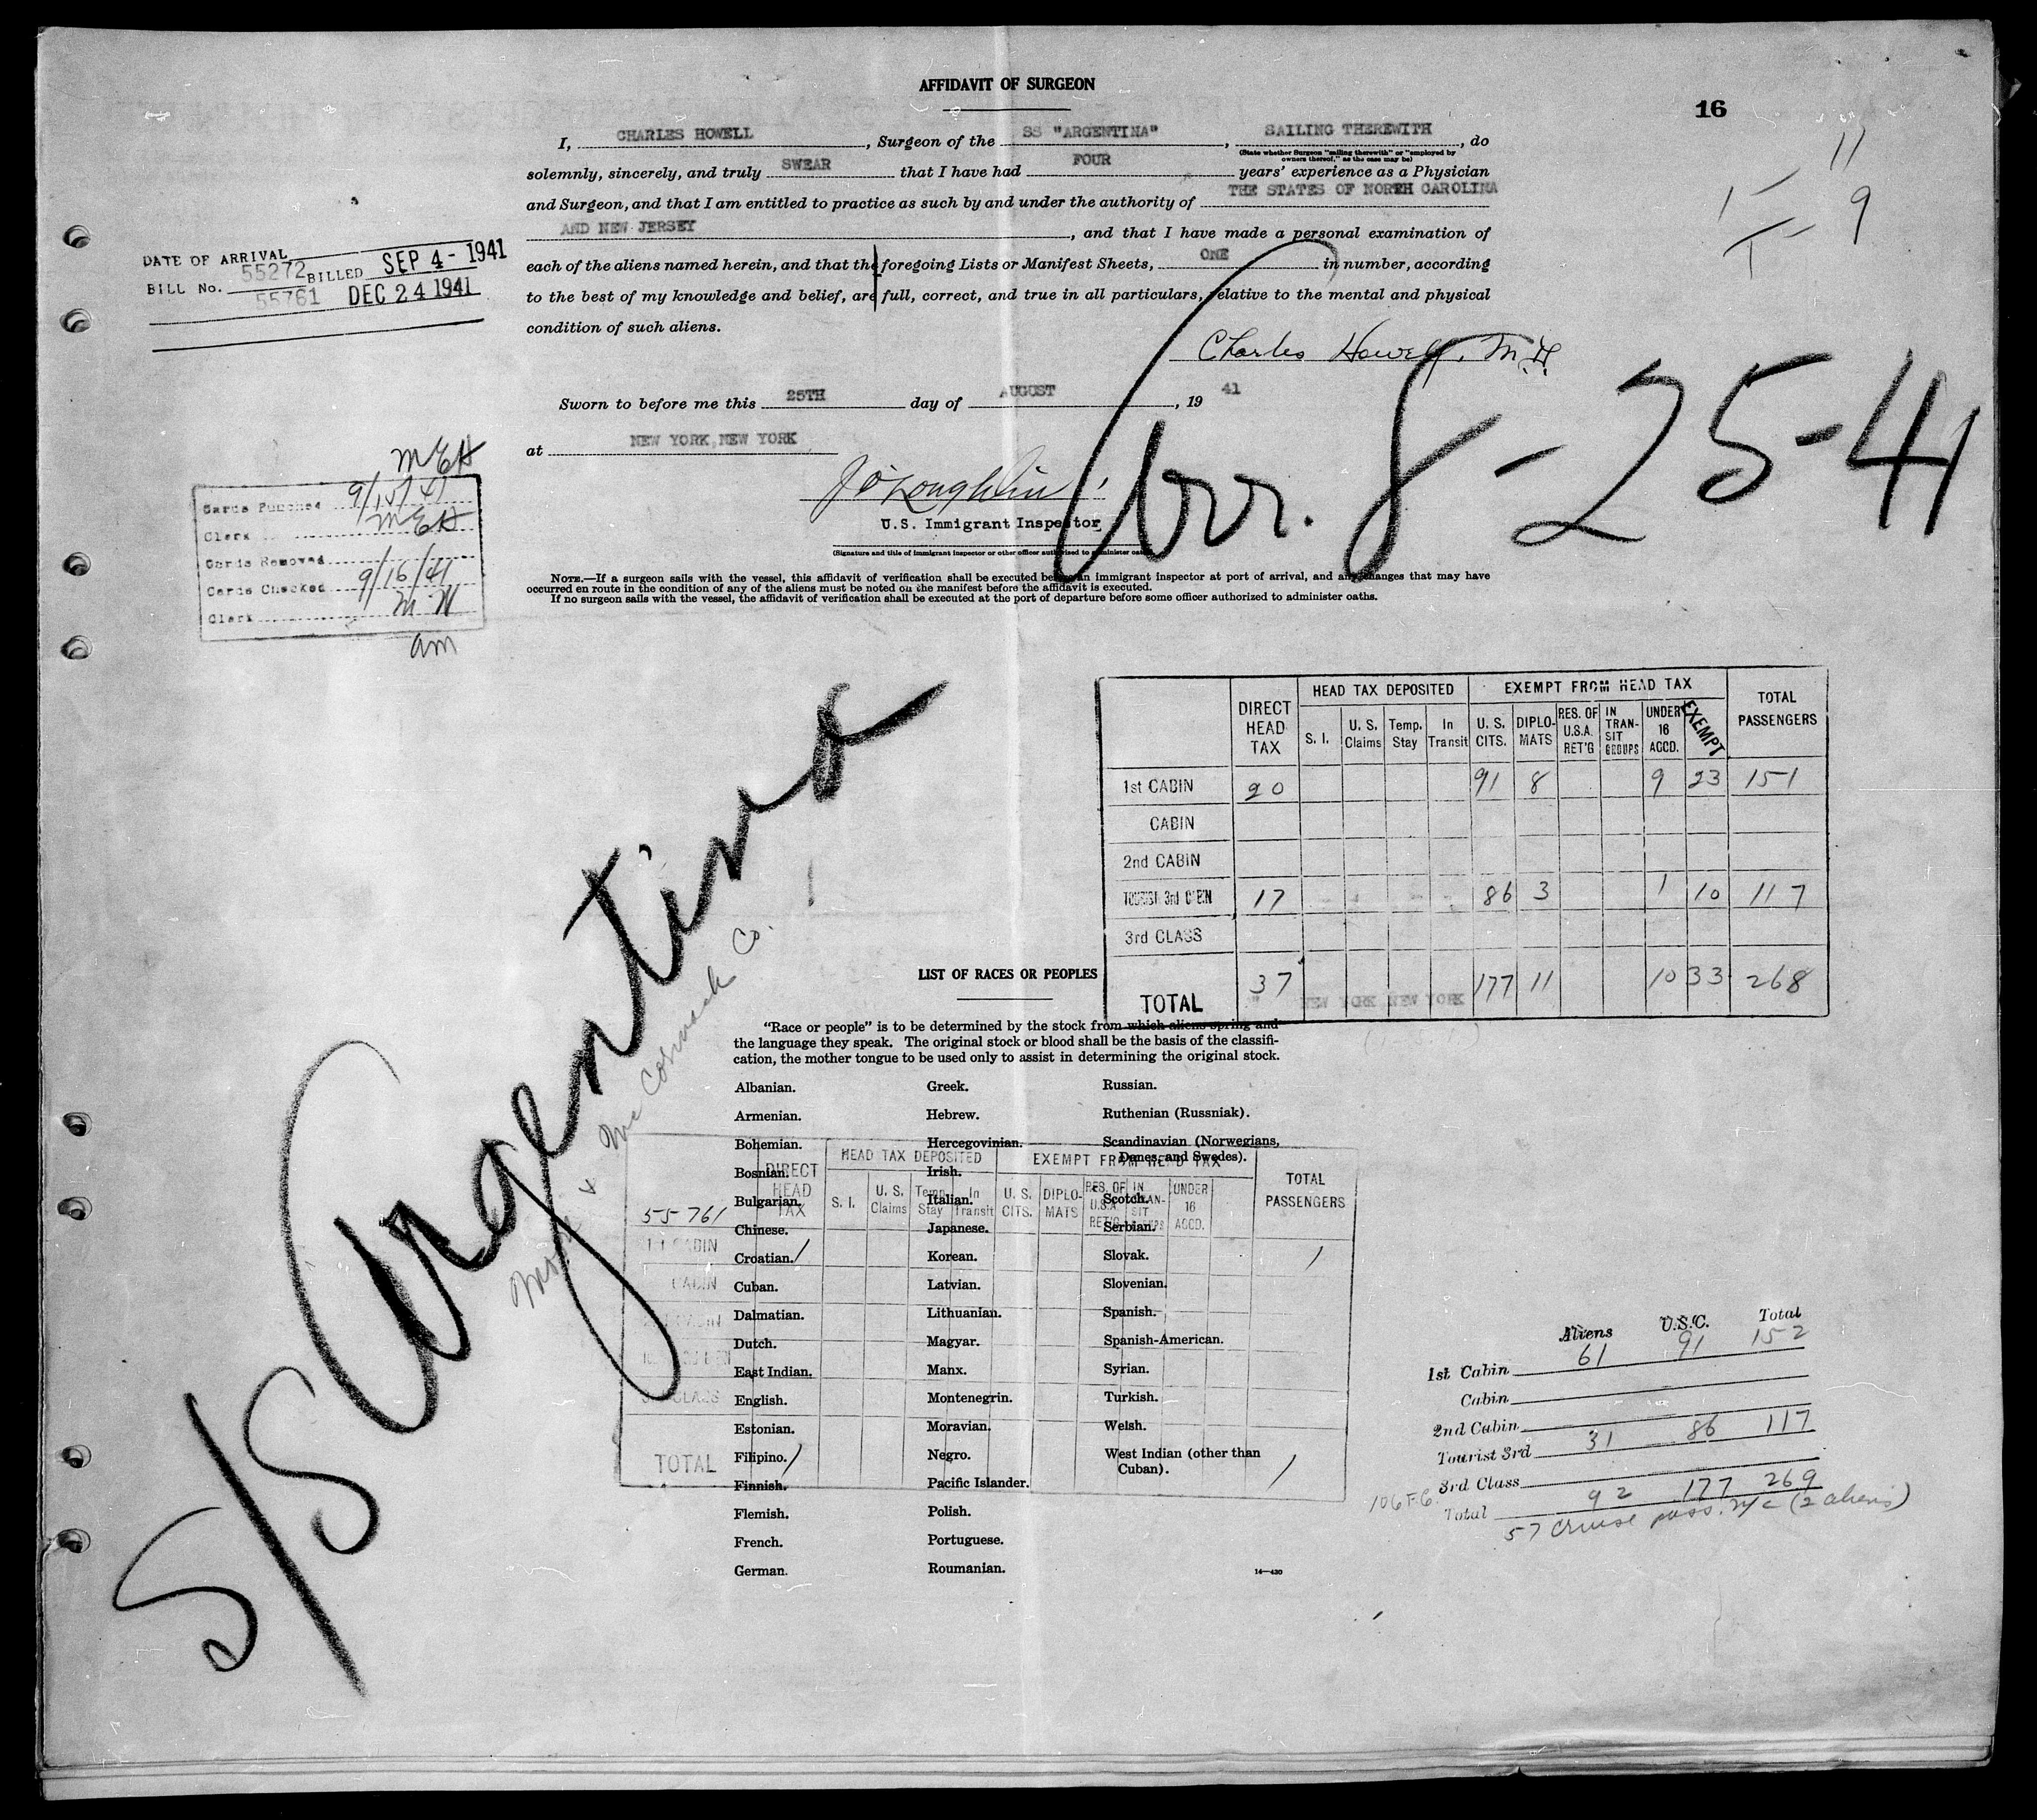 AFFIDAVIT OF SURGEON
16
I, CHARLES HOWELL, Surgeon of the SS "ARGENTINA", SAILING THEREWITH, do
(State whether Surgeon "sailing therewith" or "employed by
owners thereof," as the case may be)
solemnly, sincerely, and truly SWEAR that I have had FOUR years' experience as a Physician
and Surgeon, and that I am entitled to practice as such by and under the authority of THE STATES OF NORTH CAROLINA
AND NEW JERSEY, and that I have made a personal examination of
each of the aliens named herein, and that the foregoing Lists or Manifest Sheets, ONE in number, according
to the best of my knowledge and belief, are full, correct, and true in all particulars, relative to the mental and physical
condition of such aliens.
Charles Howell, M.D.
Sworn to before me this 25TH day of AUGUST, 19 41
at NEW YORK, NEW YORK
J O'Loughlin
U.S. Immigrant Inspector
(Signature and title of immigrant inspector or other officer authorized to administer oaths)
NOTE.—If a surgeon sails with the vessel, this affidavit of verification shall be executed before an immigrant inspector at port of arrival, and any changes that may have
occurred en route in the condition of any of the aliens must be noted on the manifest before the affidavit is executed.
If no surgeon sails with the vessel, the affidavit of verification shall be executed at the port of departure before some officer authorized to administer oaths.
11
9
DATE OF ARRIVAL
BILL No. 55272 BILLED SEP 4 - 1941
55761 DEC 24 1941
arr. 8-25-41
MEH
Cards Punched 9/15/41
Clerk MEH
Cards Removed
Cards Checked 9/16/41
Clerk M W
am
S/S Argentina
Moore & McCormack Co.
DIRECT HEAD TAX
HEAD TAX DEPOSITED
EXEMPT FROM HEAD TAX
TOTAL PASSENGERS
S. I. U. S. Claims Temp. Stay In Transit U. S. CITS. DIPLO-MATS RES. OF U.S.A. RET'G IN TRAN-SIT GROUPS UNDER 16 ACCD. EXEMPT
1st CABIN 20 91 8 9 23 151
CABIN
2nd CABIN
TOURIST 3rd CABIN 17 86 3 1 10 117
3rd CLASS
TOTAL 37 177 11 10 33 268
NEW YORK NEW YORK
LIST OF RACES OR PEOPLES
"Race or people" is to be determined by the stock from which aliens spring and
the language they speak. The original stock or blood shall be the basis of the classifi-
cation, the mother tongue to be used only to assist in determining the original stock.
Albanian.
Armenian.
Bohemian.
Bosnian.
Bulgarian.
Chinese.
Croatian.
Cuban.
Dalmatian.
Dutch.
East Indian.
English.
Estonian.
Filipino.
Finnish.
Flemish.
French.
German.
Greek.
Hebrew.
Hercegovinian.
Irish.
Italian.
Japanese.
Korean.
Latvian.
Lithuanian.
Magyar.
Manx.
Montenegrin.
Moravian.
Negro.
Pacific Islander.
Polish.
Portuguese.
Roumanian.
Russian.
Ruthenian (Russniak).
Scandinavian (Norwegians,
Danes, and Swedes).
Scotch.
Serbian.
Slovak.
Slovenian.
Spanish.
Spanish-American.
Syrian.
Turkish.
Welsh.
West Indian (other than
Cuban).
14—430
DIRECT HEAD TAX
HEAD TAX DEPOSITED
EXEMPT FROM HEAD TAX
TOTAL PASSENGERS
S. I. U. S. Claims Temp. Stay In Transit U. S. CITS. DIPLO-MATS RES. OF U.S.A. RET'G IN TRAN-SIT GROUPS UNDER 16 ACCD.
55761
1st CABIN 1 1
CABIN
CABIN
CLASS
TOTAL 1 1
Aliens U.S.C. Total
1st Cabin 61 91 152
Cabin
2nd Cabin
Tourist 3rd 31 86 117
3rd Class
Total 92 177 269
106 F.C.
57 cruise pass. n/c (2 aliens)